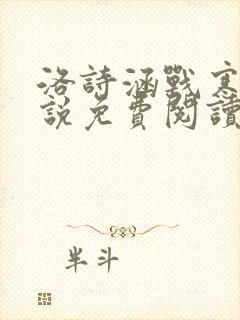 洛詩涵戰寒
說免費閱讀
半斗